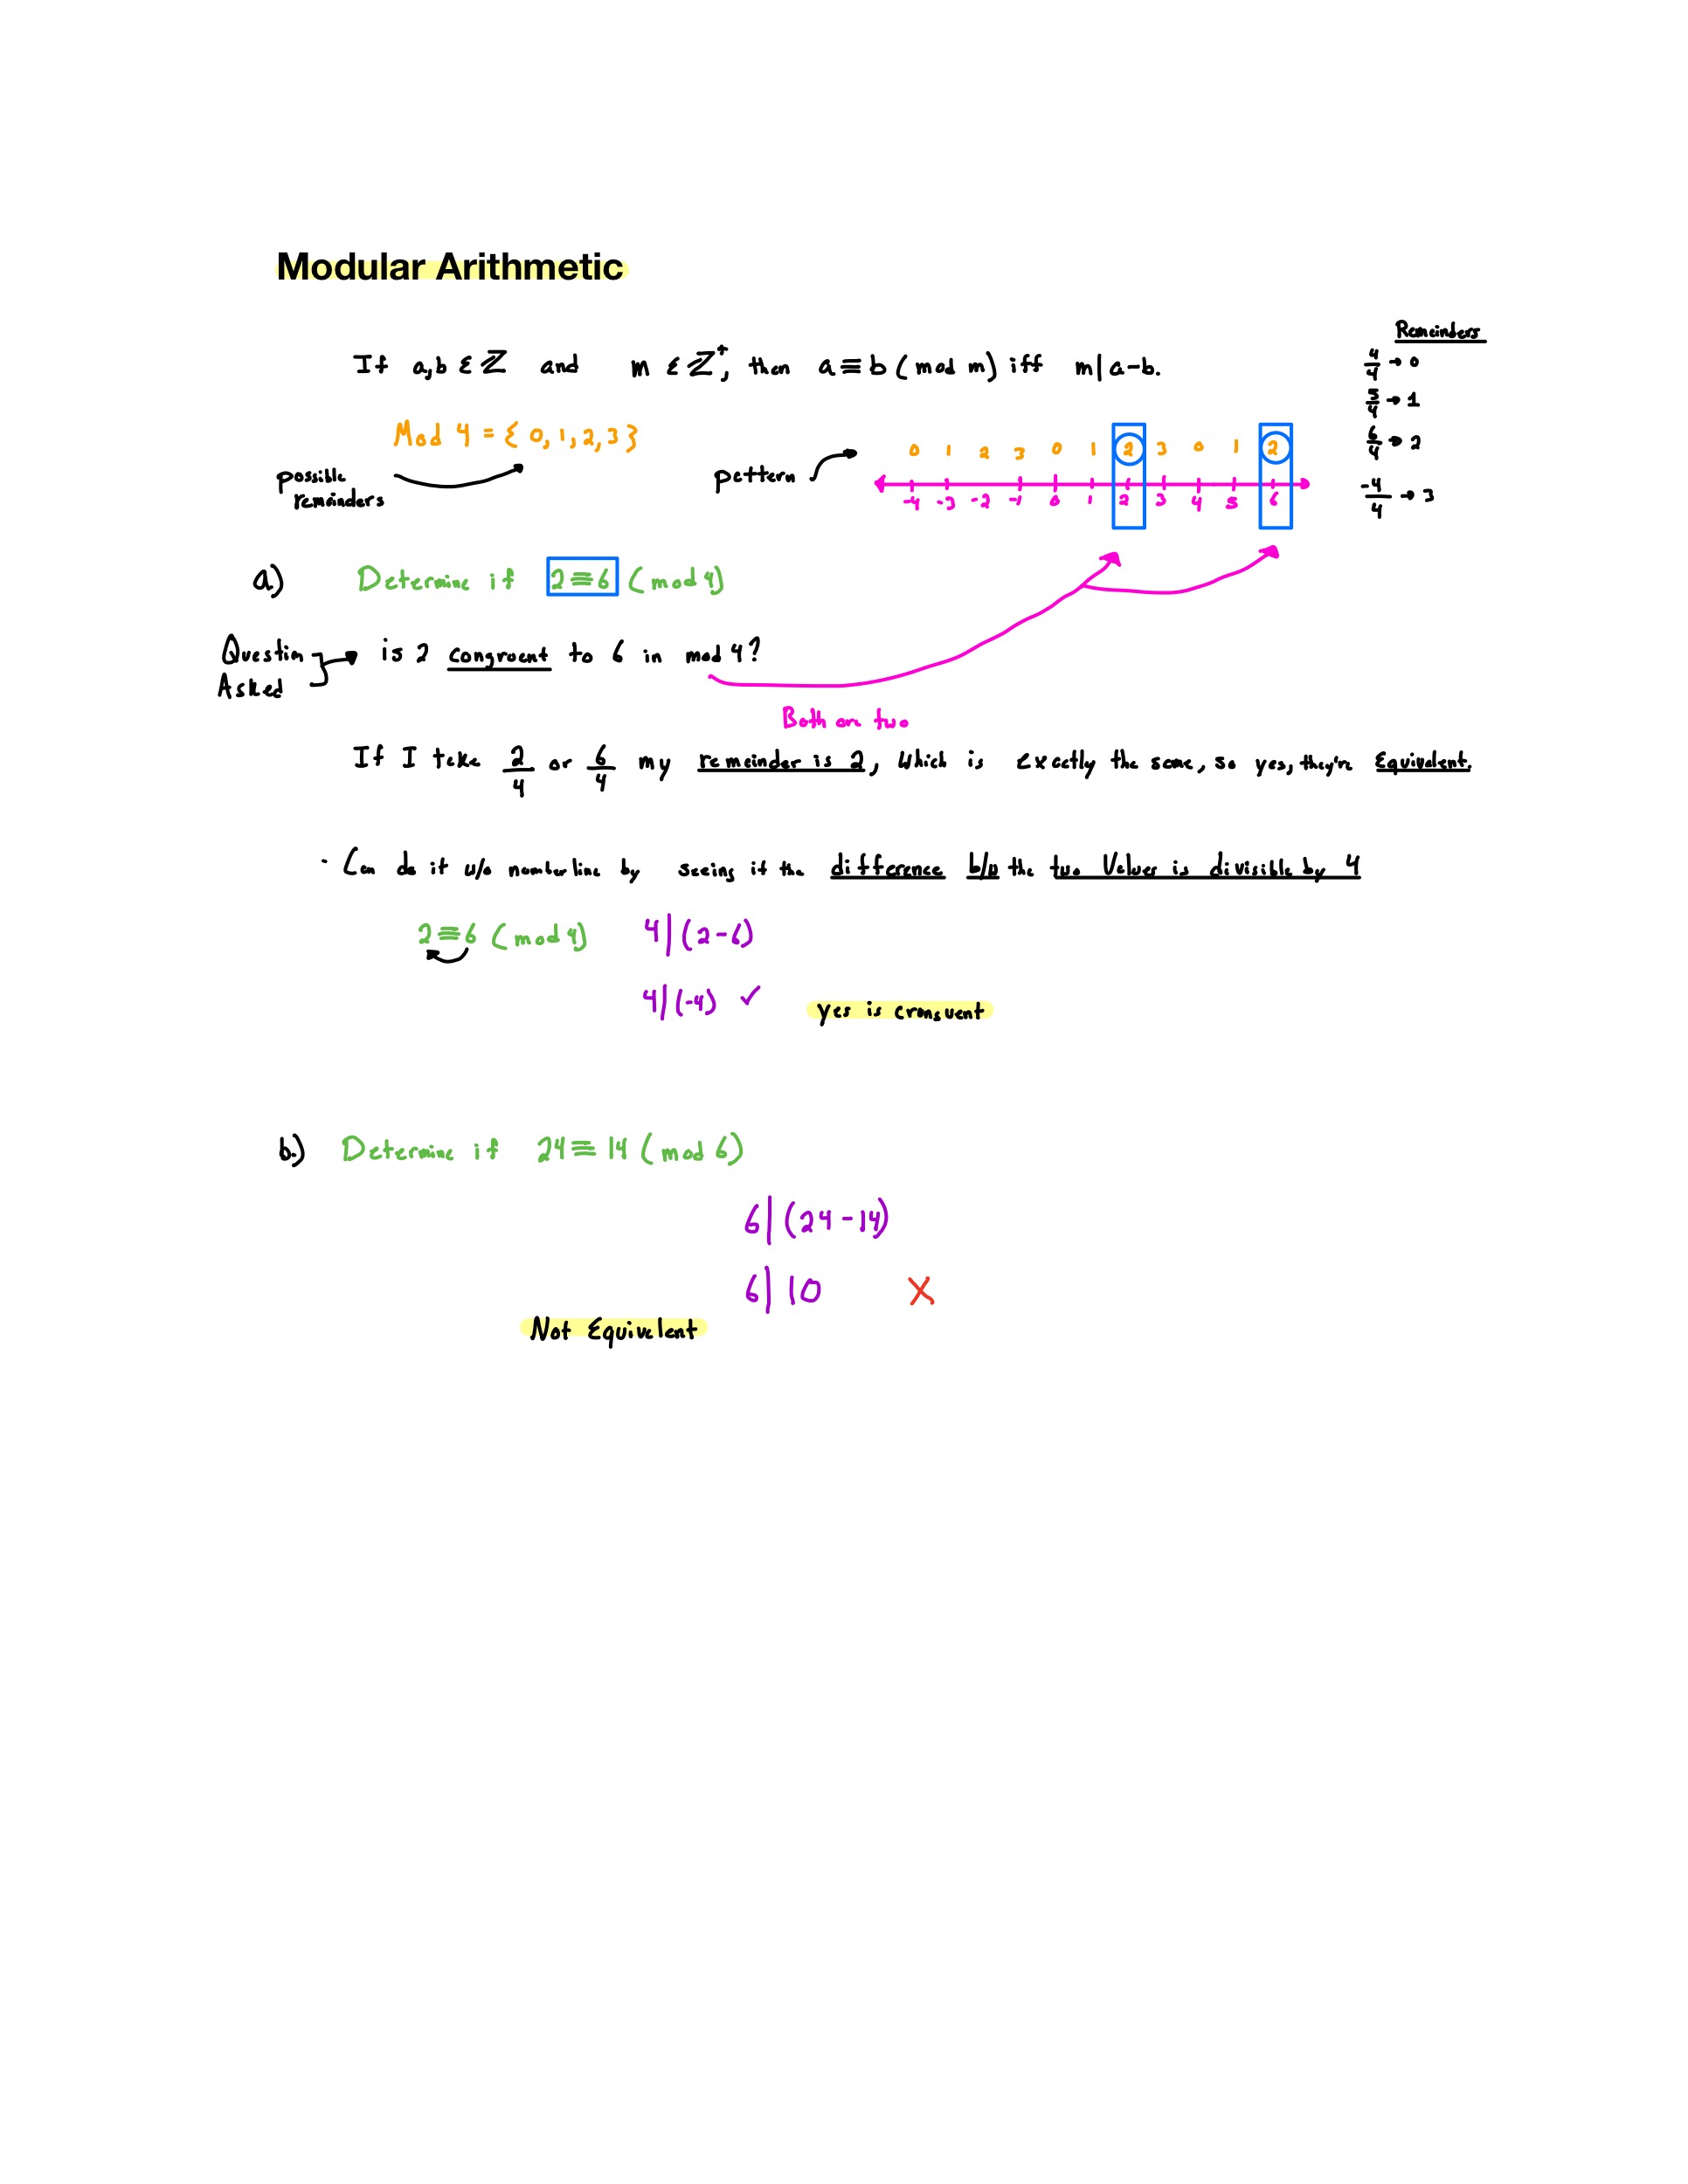 Modular Arithmetic
Remainders
If a,b ∈ ℤ and m ∈ ℤ⁺, then a ≡ b (mod m) iff m | a-b.
4/4 → 0
5/4 → 1
Mod 4 = { 0, 1, 2, 3 }
6/4 → 2
possible
remainders
pattern
0 1 2 3 0 1 2 3 0 1 2
-4 -3 -2 -1 0 1 2 3 4 5 6
-4/4 → 3
a) Determine if 2 ≡ 6 (mod 4)
Question
Asked
is 2 congruent to 6 in mod 4?
Both are two
If I take 2/4 or 6/4 my remainder is 2, which is exactly the same, so yes, they're Equivalent.
· Can do it w/o number line by seeing if the difference b/w the two Values is divisible by 4
2 ≡ 6 (mod 4) 4 | (2-6)
4 | (-4) ✓
yes is cronguent
b.) Determine if 24 ≡ 14 (mod 6)
6 | (24-14)
6 | 10 X
Not Equivalent